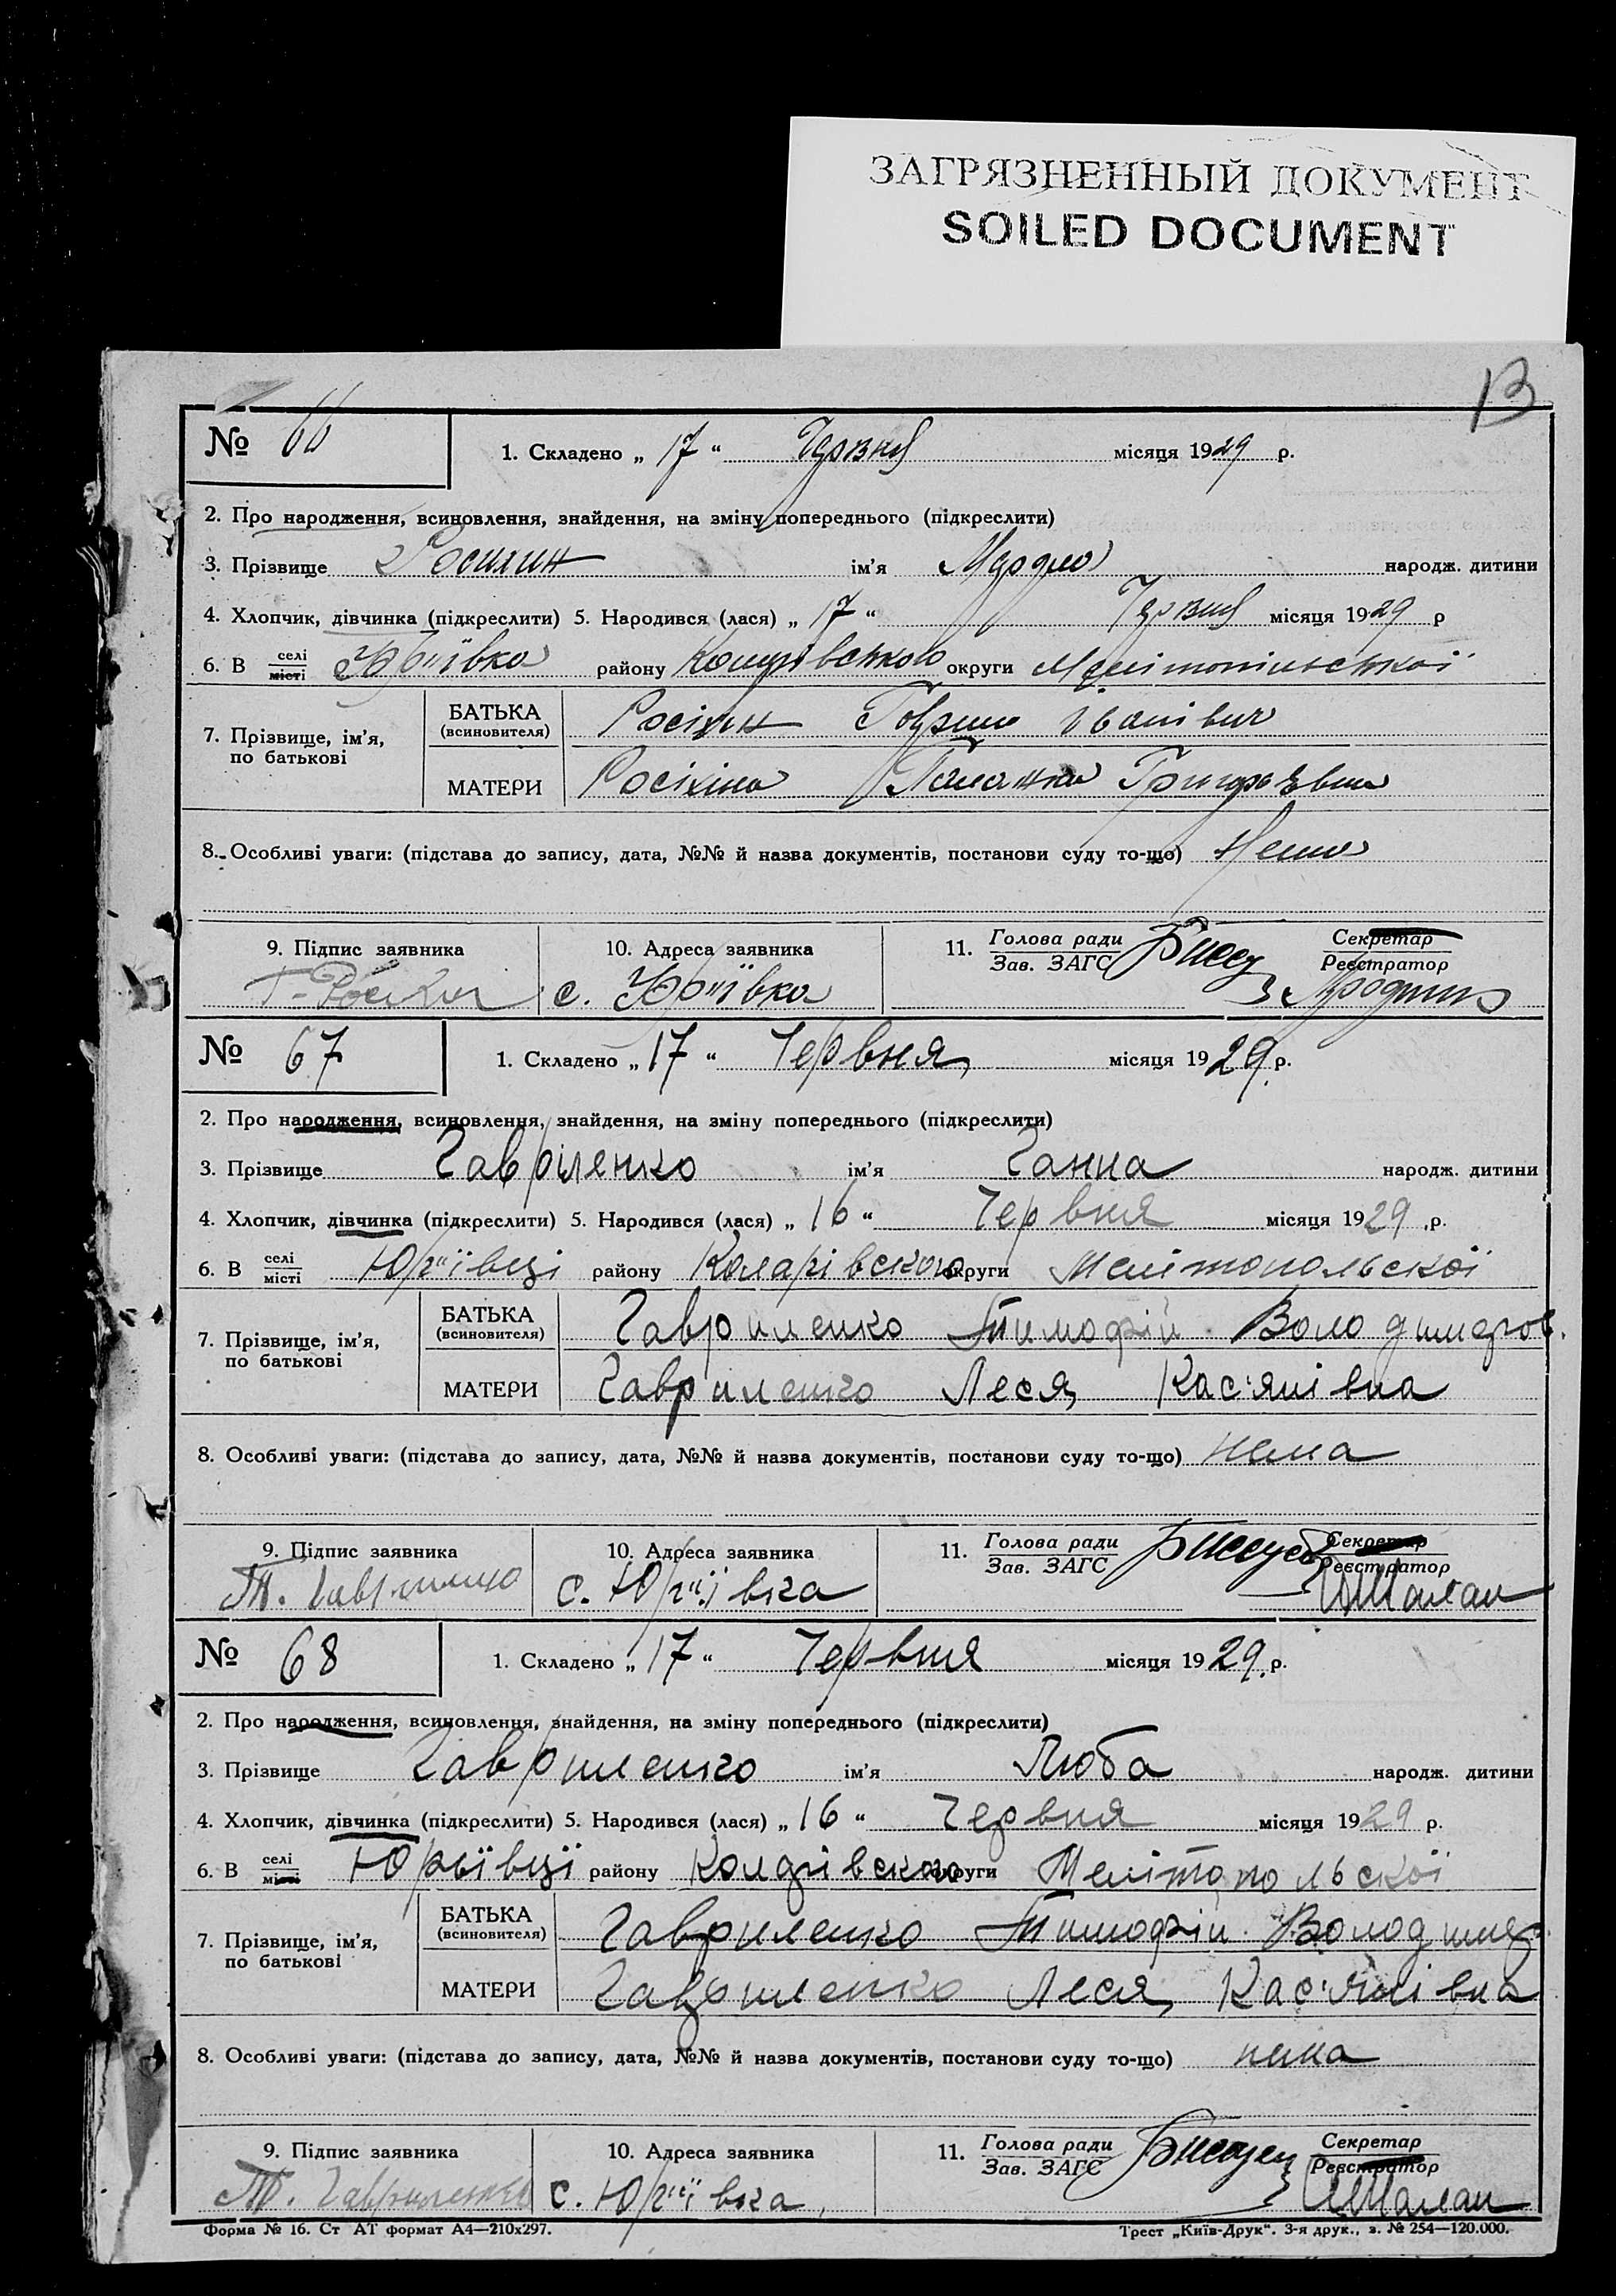 ЗАГРЯЗНЕННЫЙ ДОКУМЕНТ
SOILED DOCUMENT
13
№ 66 1. Складено „ 17 “ Червня місяця 1929 р.
2. Про народження, всиновлення, знайдення, на зміну попереднього (підкреслити)
3. Прізвище ім'я народж. дитини
4. Хлопчик, дівчинка (підкреслити) 5. Народився (лася) „ 17 “ Червня місяця 1929 р
6. В селі місті району округи Мелітопільської
7. Прізвище, ім'я, по батькові БАТЬКА (всиновителя) Росіхін Іванівич
МАТЕРИ Росіхіна Палажка
8. Особливі уваги: (підстава до запису, дата, №№ й назва документів, постанови суду то-що) Нема
9. Підпис заявника 10. Адреса заявника 11. Голова ради Зав. ЗАГС Секретар Реєстратор
с. Юр'ївка
№ 67 1. Складено „ 17 “ Червня місяця 1929 р.
2. Про народження, всиновлення, знайдення, на зміну попереднього (підкреслити)
3. Прізвище Гавріленко ім'я Ганна народж. дитини
4. Хлопчик, дівчинка (підкреслити) 5. Народився (лася) „ 16 “ Червня місяця 1929 р.
6. В селі місті Юр'ївці району Коларівського округи Мелітопольскої
7. Прізвище, ім'я, по батькові БАТЬКА (всиновителя) Гавриленко Тимофій Володимиров.
МАТЕРИ Гавриленко Леся Кас'янівна
8. Особливі уваги: (підстава до запису, дата, №№ й назва документів, постанови суду то-що) нема
9. Підпис заявника 10. Адреса заявника 11. Голова ради Зав. ЗАГС Секретар Реєстратор
Т. Гавриленко с. Юр'ївка
№ 68 1. Складено „ 17 “ Червня місяця 1929 р.
2. Про народження, всиновлення, знайдення, на зміну попереднього (підкреслити)
3. Прізвище Гавриленко ім'я Люба народж. дитини
4. Хлопчик, дівчинка (підкреслити) 5. Народився (лася) „ 16 “ Червня місяця 1929 р.
6. В селі місті Юрьївці району Коларівского округи Мелітопольскої
7. Прізвище, ім'я, по батькові БАТЬКА (всиновителя) Гавриленко Тимофій Володимир.
МАТЕРИ Гавриленко Леся Кас'янівна
8. Особливі уваги: (підстава до запису, дата, №№ й назва документів, постанови суду то-що) нема
9. Підпис заявника 10. Адреса заявника 11. Голова ради Зав. ЗАГС Секретар Реєстратор
Т. Гавриленко с. Юр'ївка
Форма № 16. Ст АТ формат А4—210х297. Трест „Київ-Друк“. 3-я друк., з. № 254—120.000.